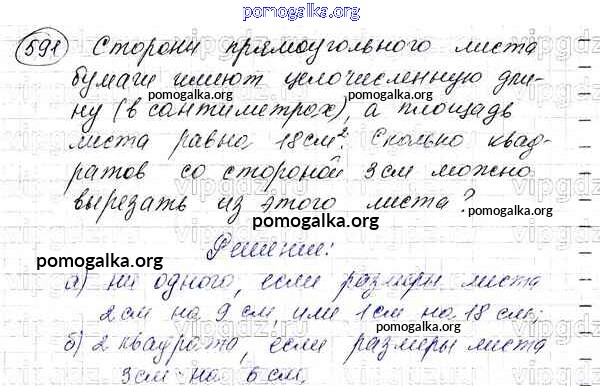 pomogalka.org
591 Стороны прямоугольного листа
бумаги имеют целочисленную дли-
pomogalka.org pomogalka.org
ну (в сантиметрах), а площадь
листа равна 18 см². Сколько квад-
ратов со стороной 3 см можно
вырезать из этого листа?
pomogalka.org
Решение:
pomogalka.org
а) ни одного, если размеры листа
2 см на 9 см, или 1 см на 18 см;
pomogalka.org
б) 2 квадрата, если размеры листа
3 см на 6 см,
pomogalka.org